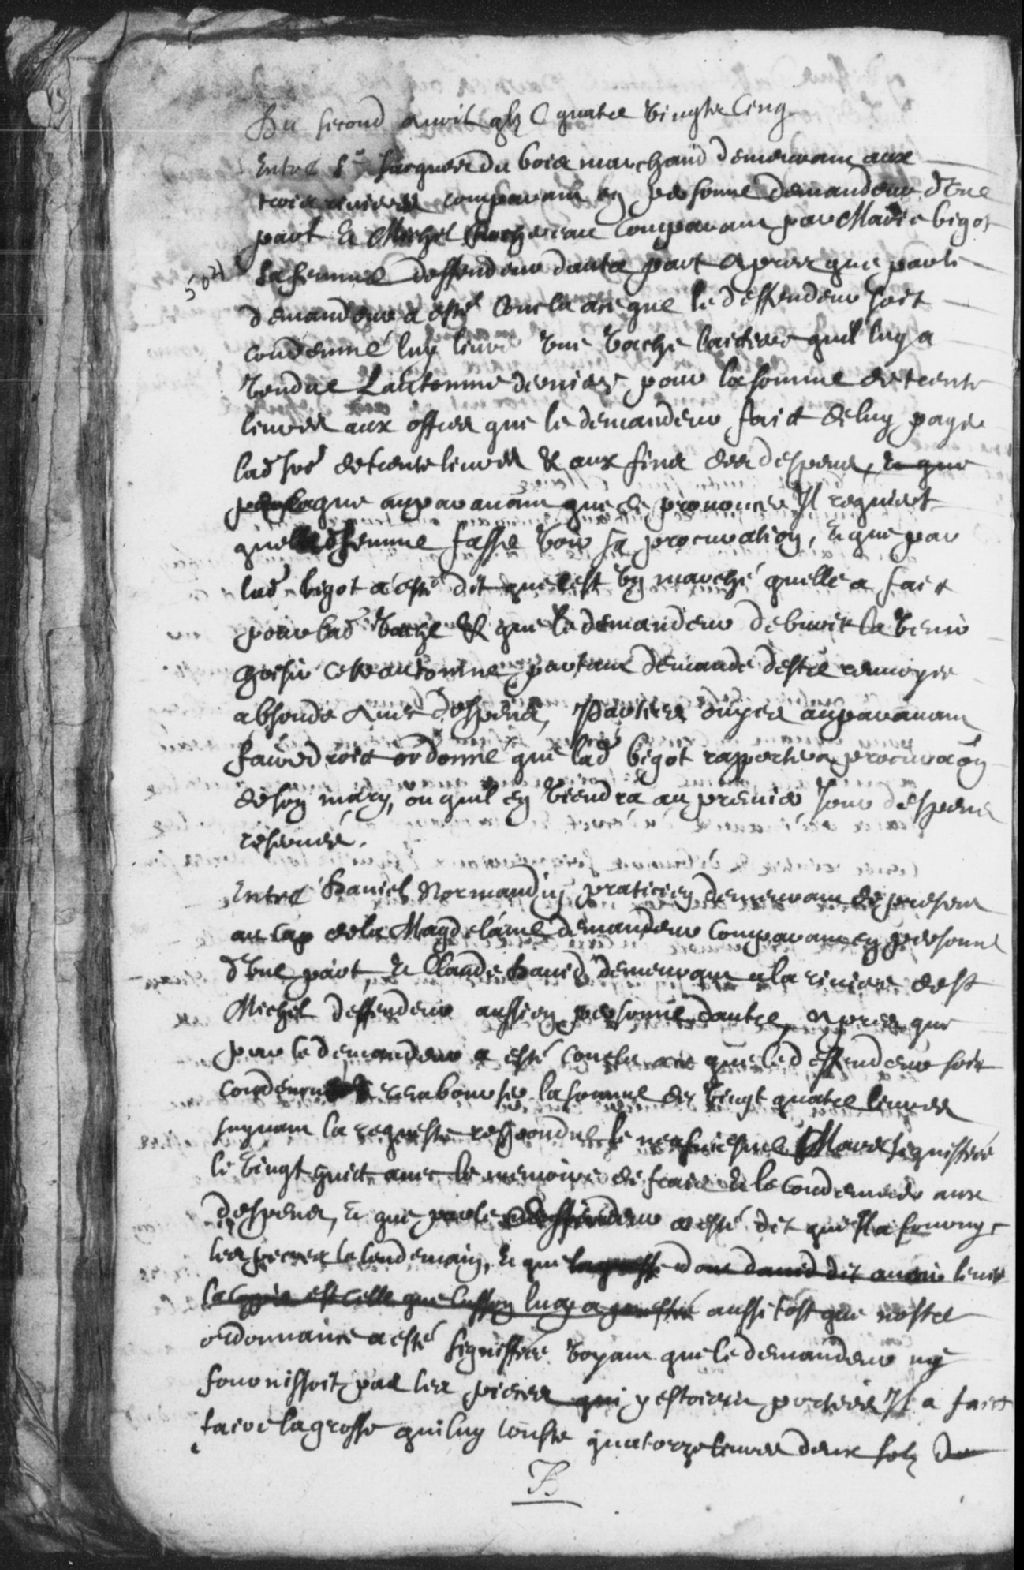 Du second Avril gbz C quatre vingtz Cinq
Entre Sr Jacques du bois marchand demeurant aux
trois rivieres comparant en personne demandeur d'Une
part Et Michel Rochereau Comparant par Marie bigot
sa femme deffendeur dautre part Apres que par le
demandeur a esté Conclud a ce que le deffendeur soit
condemné luy livrer Une Vache laictiere quil luy a
Vendue L'autonne dernier pour la somme de trente
livres aux offres que le demandeur faict de luy payer
lad som̃e de trente livres & aux fins des despens, Et que
auparavant que de prononcer Il requiert
que lad femme fasse voir sa procuration, Et que par
lad bigot a esté dit que cest Un marché quelle a fait
pour lad Vache & que le demandeur debvoit la Venir
querir cet autonne partant demande d'estre renvoyée
absoude Avec despens, Parties ouyes auparavant
faire droict ordonné que lad bigot rapportera procura͠on
de son mary, ou quil en Viendra au premier Jour despens
reservés.
Entre Daniel Normandin praticien demeurant de present
au Cap de la Magdelaine demandeur Comparant en personne
d'Une part, Et Claude David demeurant a la riviere de St
Michel deffendeur aussi en personne dautre, Apres que
par le demandeur a esté Conclu a ce que le deffendeur soit
condemné rembourser la somme de Vingt quatre livres
suyvant la requeste respondue le Mars signiffiée
le Vingt huict avec le memoire de frais & le Condemner aux
despens, Et que par le deffendeur a esté dit quil a fourny
les pieces le lendemain, Et que la grosse dont david dit avoir levé
la Coppie est celle que luy a aussi tost que nostre
ordonnance a esté signiffiée Voyant que le demandeur ne
fournissoit pas les pieces qui y estoient portées Il a faict
faire la grosse qui luy couste quatorze livres deux solz De